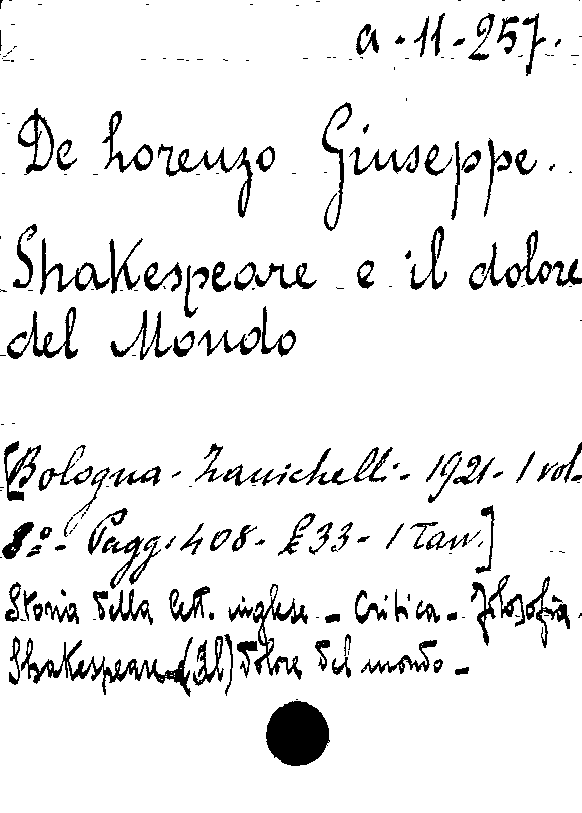 a-11-257.
De Lorenzo Giuseppe.
Shakespeare e il dolore
del Mondo
[Bologna - Zanichelli - 1921 - 1 vol-
8º - Pagg. 408 - £ 33 - 1 Tav.]
Storia della lett. inglese - Critica - Filosofia.
Shakespeare (Il) dolore del mondo -